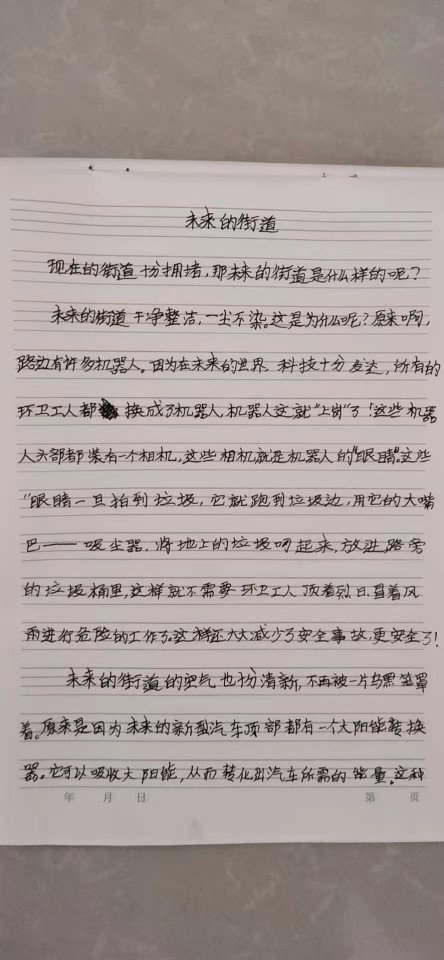 未来的街道
现在的街道十分拥堵,那未来的街道是什么样的呢?
未来的街道干净整洁,一尘不染。这是为什么呢?原来啊,
路边有许多机器人。因为在未来的世界,科技十分发达,所有的
环卫工人都换成了机器人,机器人这就"上岗"了!这些机器
人头部都装有一个相机,这些相机就是机器人的"眼睛"。这些
"眼睛一旦拍到垃圾,它就跑到垃圾边,用它的大嘴
巴——吸尘器,将地上的垃圾吸起来,放进路旁
的垃圾桶里,这样就不需要环卫工人顶着烈日、冒着风
雨进行危险的工作了。这样还大大减少了安全事故,更安全了!
未来的街道的空气也十分清新,不再被一片乌黑笼罩
着。原来是因为未来的新型汽车顶部都有一个太阳能转换
器。它可以吸收太阳能,从而转化出汽车所需的能量。这种
年 月 日 第 页